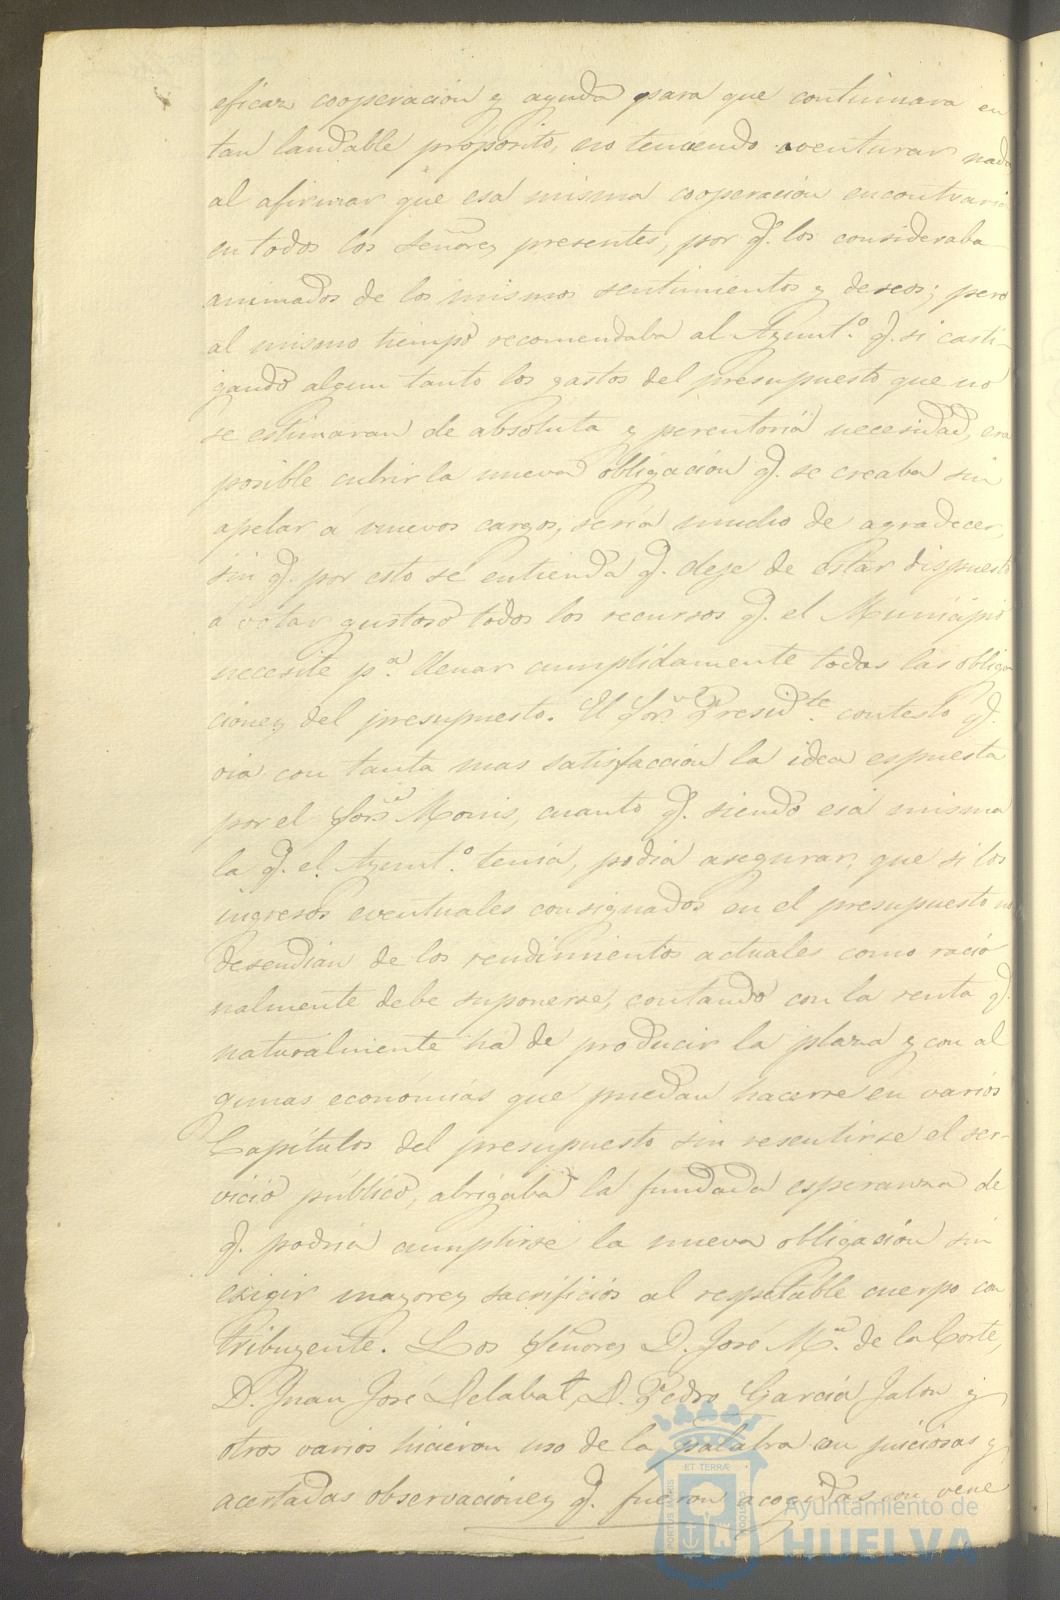 eficaz cooperacion y ayuda para que continuara en
tan laudable proposito, no temiendo aventurar nada
al afirmar que esa misma cooperacion encontraria
en todos los Señores presentes, por q.e los consideraba
animados de los mismos sentimientos y deseos; pero
al mismo tiempo recomendaba al Ayunt.o q.e si casti-
gando algun tanto los gastos del presupuesto que no
se estimaran de absoluta y perentoria necesidad, era
posible cubrir la nueva obligacion q.e se creaba sin
apelar á nuevos cargos, seria mucho de agradecer,
sin q.e por esto se entienda q.e deje de estar dispuesto
á votar gustoso todos los recursos q.e el Municipio
necesite p.a llenar cumplidamente todas las obliga
ciones del presupuesto. El Sor. Presid.te contestó q.e
oia con tanta mas satisfaccion la idea espuesta
por el Sor. Monis, cuanto q.e siendo esa misma
la q.e el Ayunt.o tenia, podia asegurar, que si los
ingresos eventuales consignados en el presupuesto no
desendian de los rendimientos actuales como racio
nalmente debe suponerse, contando con la renta q.e
naturalmente ha de producir la plaza y con al
gunas economias que puedan hacerse en varios
Capitulos del presupuesto sin resentirse el ser-
vicio público, abrigaba la fundada esperanza de
q.e podria cumplirse la nueva obligacion sin
exigir mayores sacrificios al respetable cuerpo con
tribuyente. Los Señores D. José M.a de la Corte,
D. Juan José Delabat, D. Pedro Garcia Jalon y
otros varios hicieron uso de la palabra en juiciosas y
acertadas observaciones q.e fueron acogidas con vene
ET TERRÆ
PORTUS MARIS
CUSTODIA
Ayuntamiento de
HUELVA